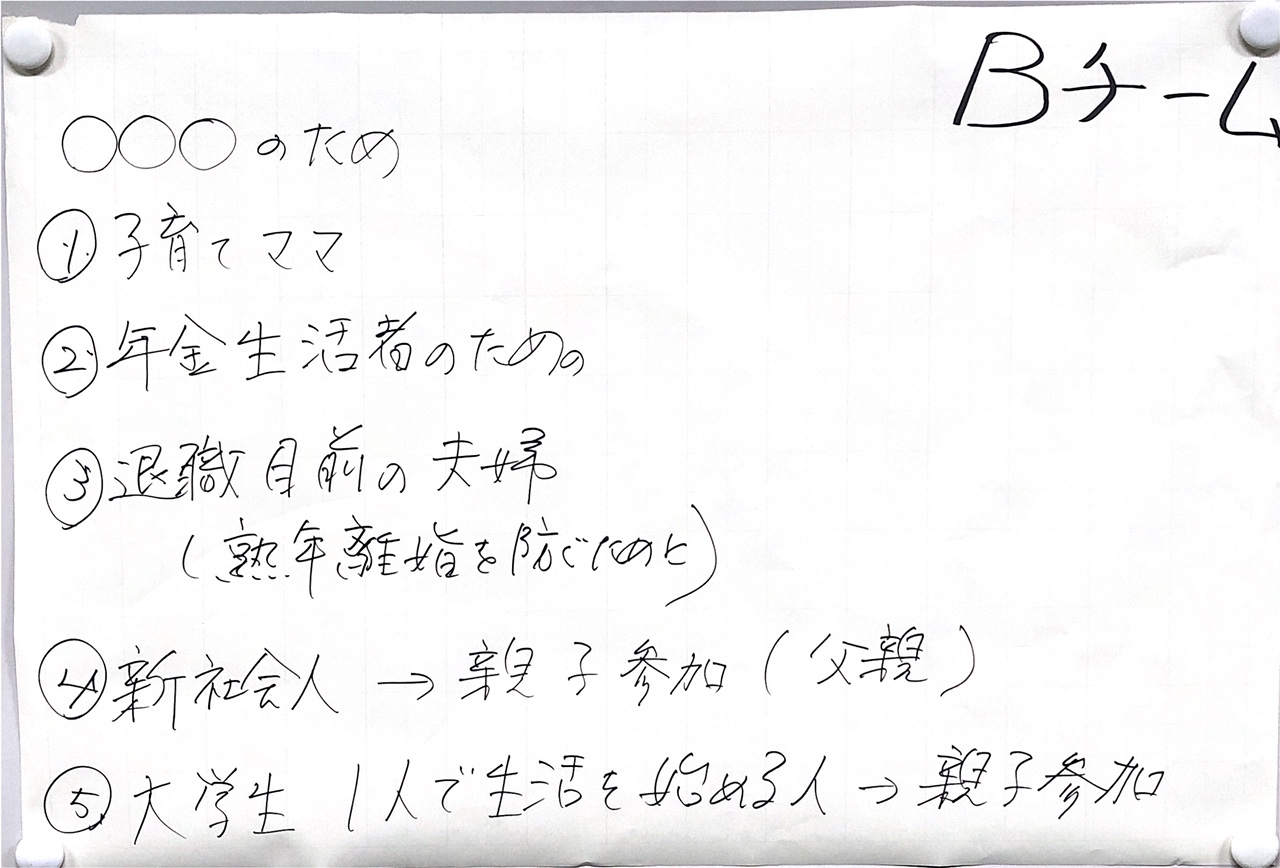 Bチーム
○○○のため
①子育てママ
②年金生活者のための
③退職目前の夫婦
(熟年離婚を防ぐために)
④新社会人 → 親子参加(父親)
⑤大学生 1人で生活を始める人→親子参加